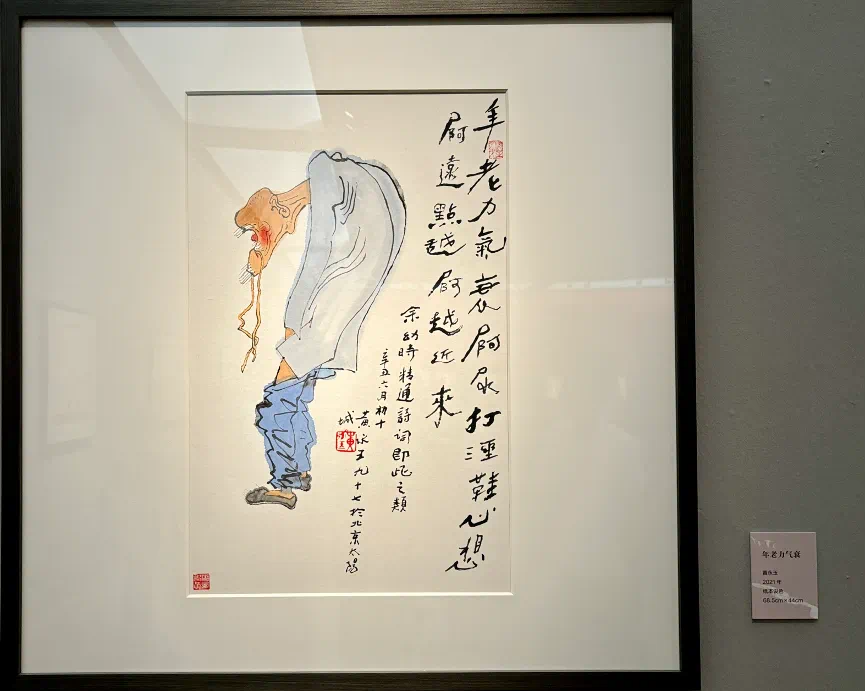 年老力氣衰屙尿打溼鞋心想
屙遠點越屙越近來
余幼時精通詩詞即此之類
辛丑六月初十
黃永玉九十七於北京太陽
城
年老力气衰
黄永玉
2021年
纸本设色
66.5cm×44cm